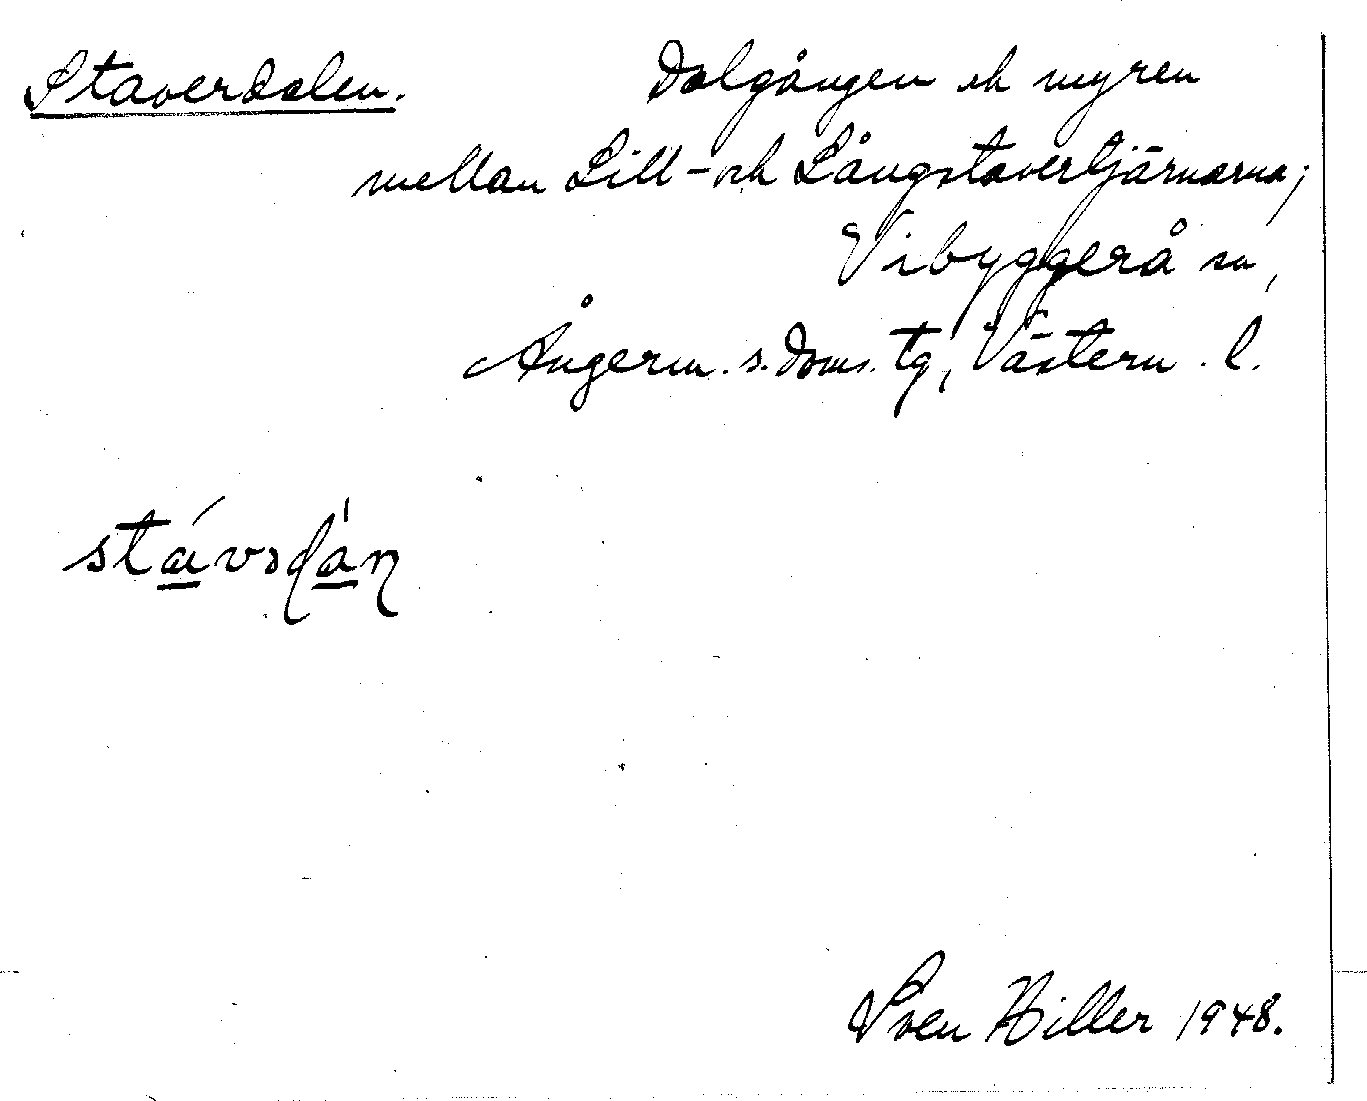 Staverdalen. Dalgången och myren
mellan Lill- och Långstavertjärnarna;
Vibyggerå sn,
Ångerm. s. doms. tg, Västern. l.
Sven Hiller 1948.